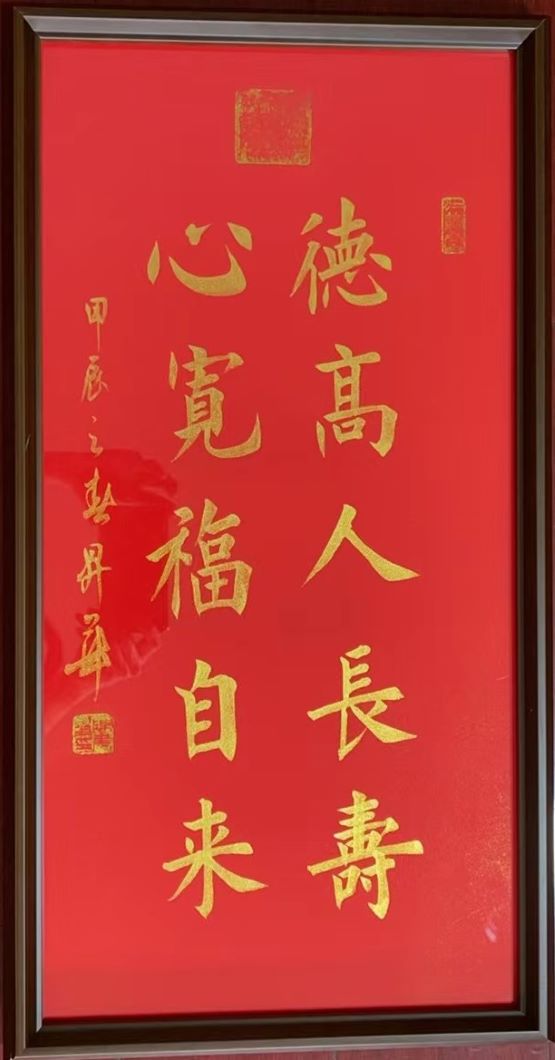 德高人長壽
心寬福自来
甲辰之春昇華